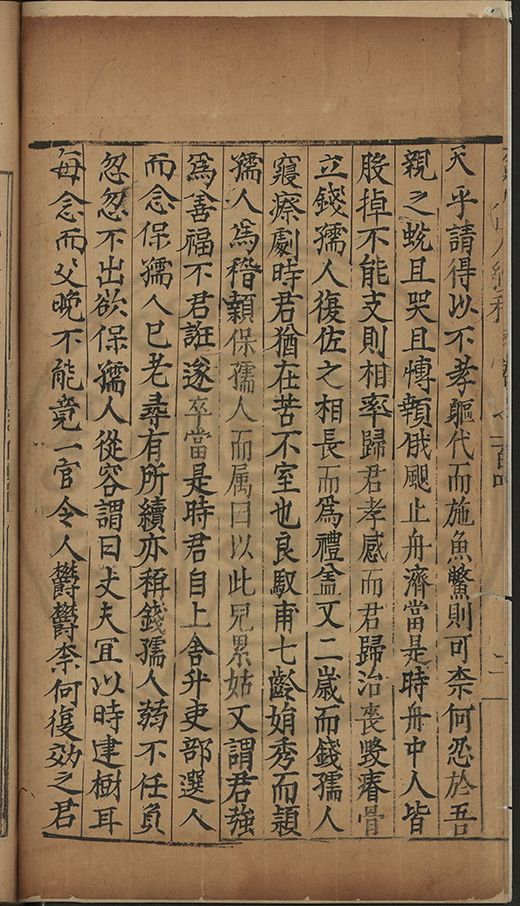 天乎請得以不孝軀代而施魚鱉則可柰何忍於吾
親之蛻且哭且愽顙俄颶止舟濟當是時舟中人皆
股掉不能支則相率歸君孝感而君歸治喪毀瘠骨
立錢孺人復佐之相長而爲禮盖又二嵗而錢孺人
寢瘵劇時君猶在苦不室也良馭甫七齡娟秀而頴
孺人爲稽顙保孺人而属曰以此兒累姑又謂君強
爲善福不君誑遂卒當是時君自上舍升吏部選人
而念保孺人已老尋有所續亦稱錢孺人蒻不任負
忽忽不出欲保孺人從容謂曰丈夫冝以時建樹耳
每念而父晚不能竟一官令人欝欝柰何復効之君